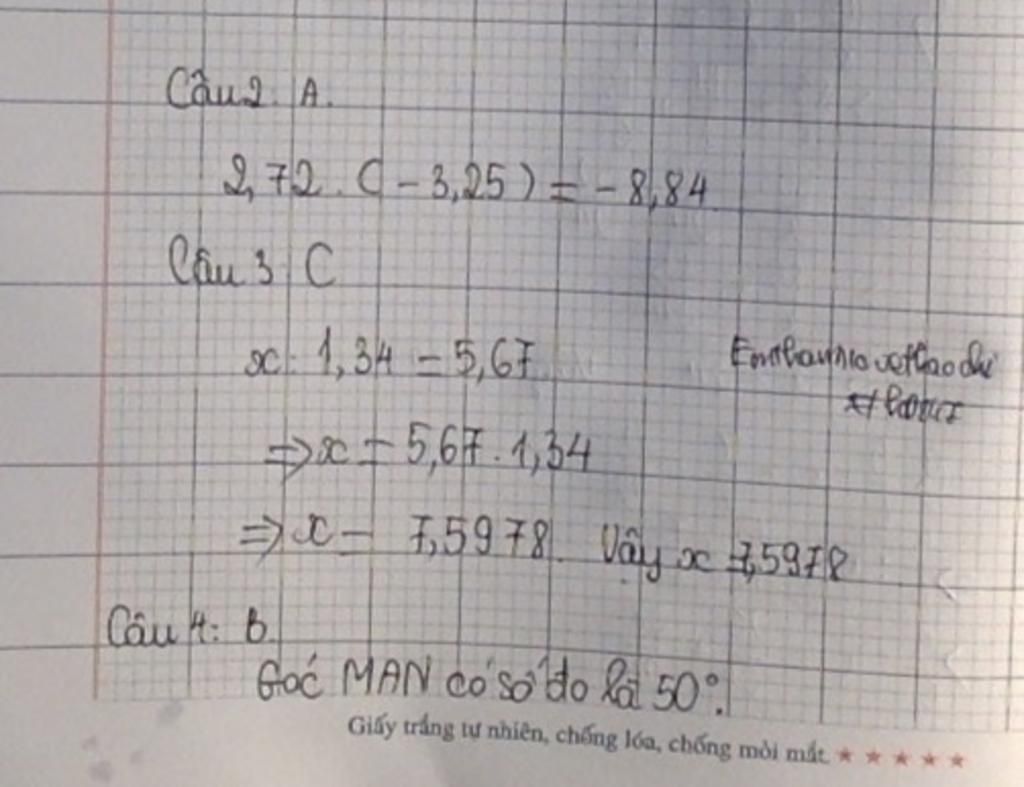 Câu 2. A.
2,72 . (-3,25) = -8,84
Câu 3 C
x : 1,34 = 5,67
=> x = 5,67 . 1,34
=> x = 7,5978. Vậy x = 7,5978
Câu 4: B.
Góc MAN có số đo là 50°.
Giấy trắng tự nhiên, chống lóa, chống mỏi mắt ★★★★★